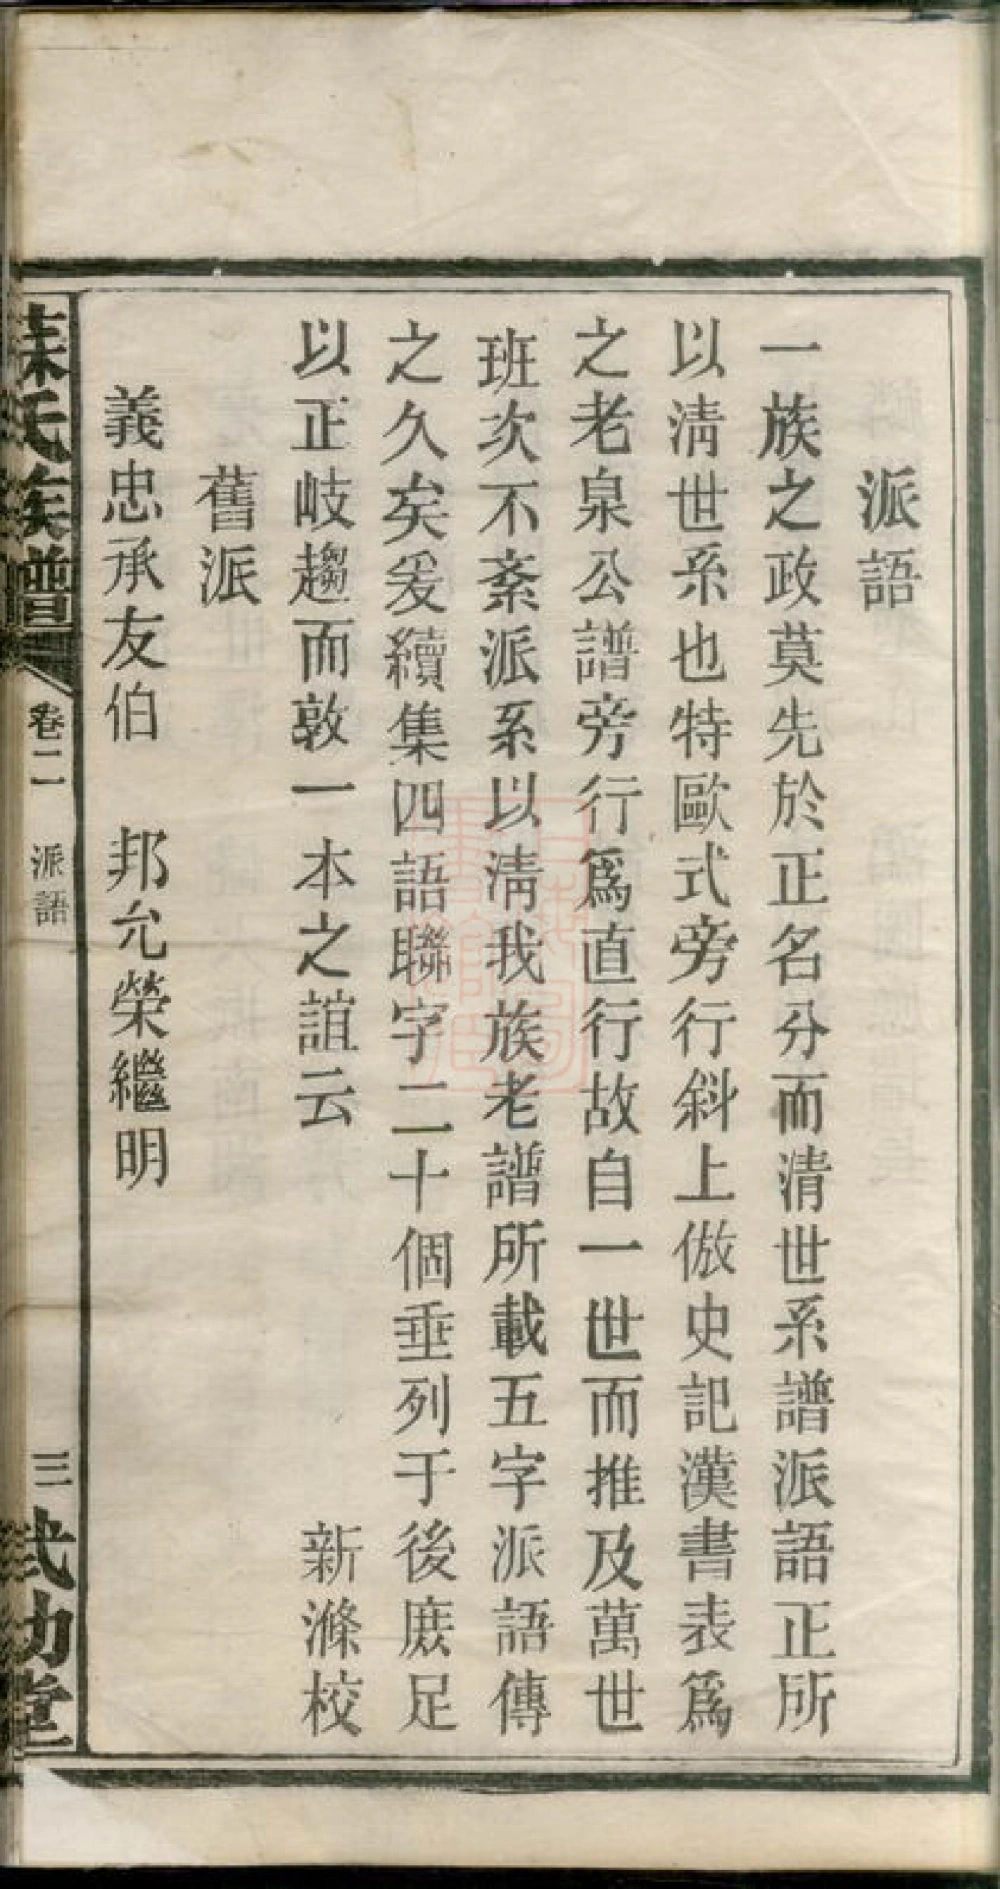 派語
一族之政莫先於正名分而清世系譜派語正所
以淸世系也特歐式旁行斜上倣史記漢書表爲
之老泉公譜旁行爲直行故自一世而推及萬世
班次不紊派系以淸我族老譜所載五字派語傳
之久矣爰續集四語聯字二十個垂列于後庶足
以正岐趨而敦一本之誼云　新滌校
舊派
義忠承友伯　邦允榮繼明
蘇氏族譜　卷二　派語　三　武功堂